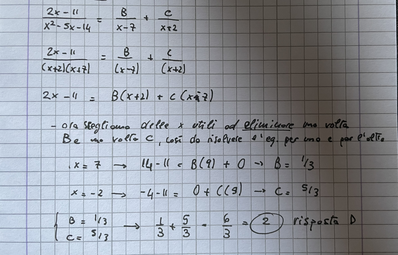 2x-11/x²-5x-14 = B/x-7 + C/x+2
2x-11/(x+2)(x+7) = B/(x-7) + C/(x+2)
2x-11 = B(x+2) + C(x-7)
- ora scegliamo delle x utili ad eliminare una volta
B e una volta C, così da risolvere l'eq. per uno e per l'altro
x=7 → 14-11 = B(9) + 0 → B = 1/3
x=-2 → -4-11 = 0 + C(9) → C = 5/3
{ B = 1/3
C = 5/3 → 1/3 + 5/3 = 6/3 = 2 risposta D